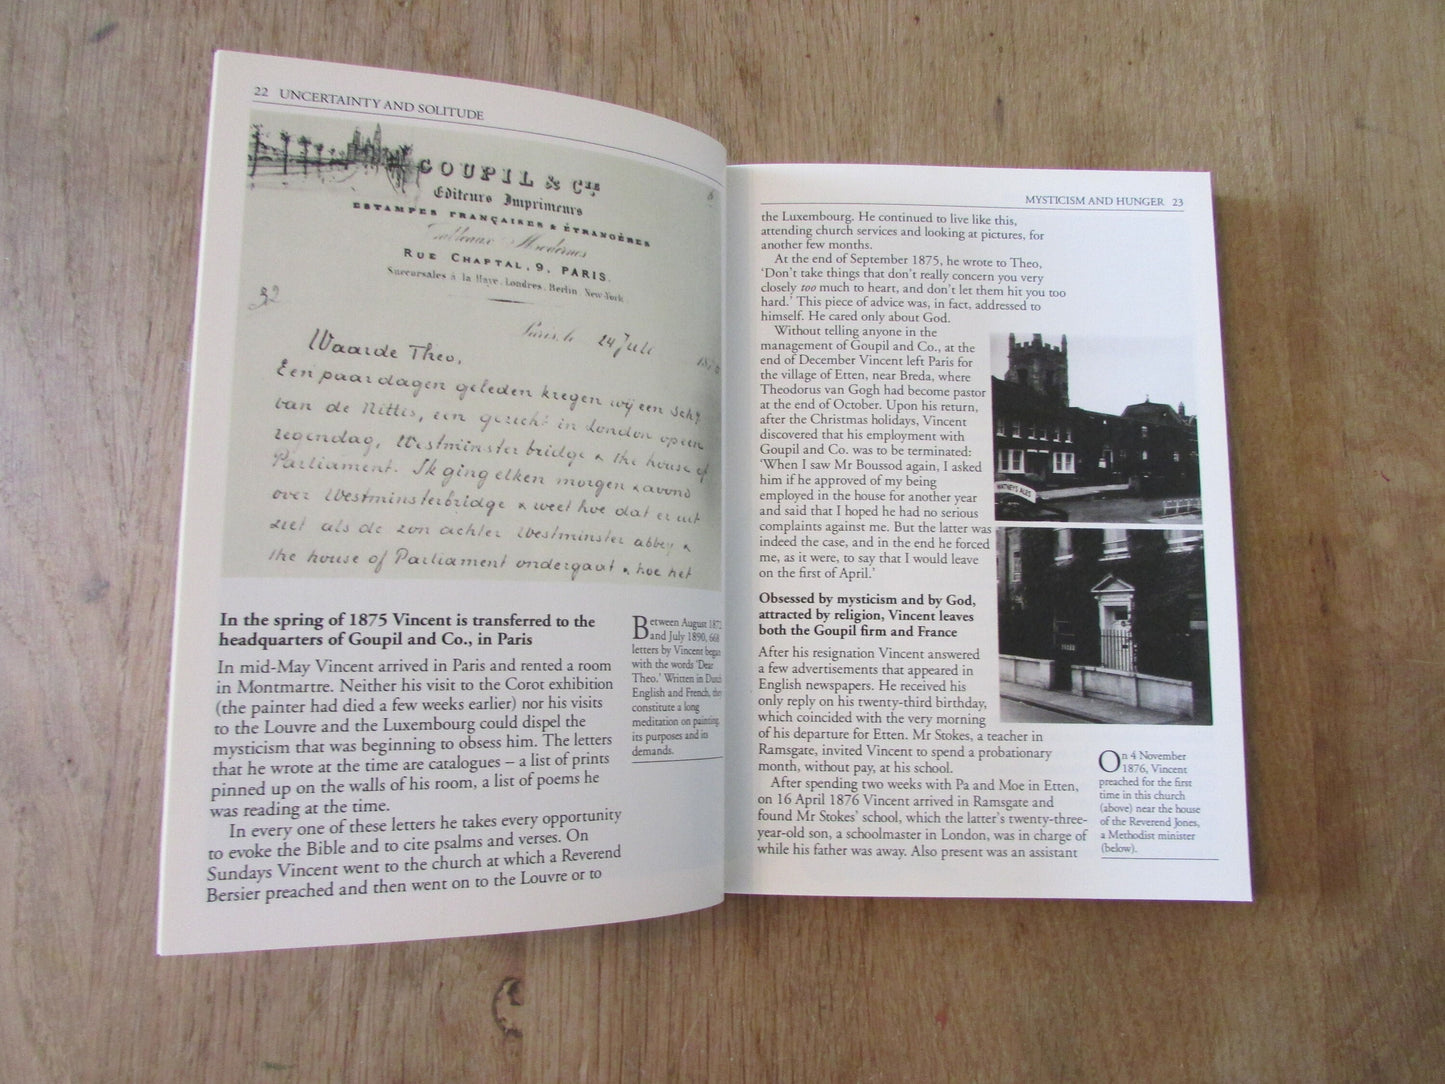 22 UNCERTAINTY AND SOLITUDE
GOUPIL & CIE
Editeurs Imprimeurs
ESTAMPES FRANÇAISES & ÉTRANGÈRES
Tableaux Modernes
RUE CHAPTAL, 9, PARIS.
Succursales à la Haye, Londres, Berlin, New-York.
32
Paris, le 24 Juli 187
Waarde Theo,
Een paar dagen geleden kregen wij een schy
van de Nittis, een gezicht in London op een
regendag, Westminster bridge & the house of
Parliament. Ik ging elken morgen & avond
over Westminsterbridge & weet hoe dat er uit
ziet als de zon achter Westminster abbey &
the house of Parliament ondergaat & hoe het
In the spring of 1875 Vincent is transferred to the
headquarters of Goupil and Co., in Paris
In mid-May Vincent arrived in Paris and rented a room
in Montmartre. Neither his visit to the Corot exhibition
(the painter had died a few weeks earlier) nor his visits
to the Louvre and the Luxembourg could dispel the
mysticism that was beginning to obsess him. The letters
that he wrote at the time are catalogues – a list of prints
pinned up on the walls of his room, a list of poems he
was reading at the time.
In every one of these letters he takes every opportunity
to evoke the Bible and to cite psalms and verses. On
Sundays Vincent went to the church at which a Reverend
Bersier preached and then went on to the Louvre or to
Between August 1872
and July 1890, 668
letters by Vincent began
with the words 'Dear
Theo.' Written in Dutch
English and French, they
constitute a long
meditation on painting,
its purposes and its
demands.
MYSTICISM AND HUNGER 23
the Luxembourg. He continued to live like this,
attending church services and looking at pictures, for
another few months.
At the end of September 1875, he wrote to Theo,
'Don't take things that don't really concern you very
closely too much to heart, and don't let them hit you too
hard.' This piece of advice was, in fact, addressed to
himself. He cared only about God.
Without telling anyone in the
management of Goupil and Co., at the
end of December Vincent left Paris for
the village of Etten, near Breda, where
Theodorus van Gogh had become pastor
at the end of October. Upon his return,
after the Christmas holidays, Vincent
discovered that his employment with
Goupil and Co. was to be terminated:
'When I saw Mr Boussod again, I asked
him if he approved of my being
employed in the house for another year
and said that I hoped he had no serious
complaints against me. But the latter was
indeed the case, and in the end he forced
me, as it were, to say that I would leave
on the first of April.'
WATNEYS ALES
Obsessed by mysticism and by God,
attracted by religion, Vincent leaves
both the Goupil firm and France
After his resignation Vincent answered
a few advertisements that appeared in
English newspapers. He received his
only reply on his twenty-third birthday,
which coincided with the very morning
of his departure for Etten. Mr Stokes, a teacher in
Ramsgate, invited Vincent to spend a probationary
month, without pay, at his school.
After spending two weeks with Pa and Moe in Etten,
on 16 April 1876 Vincent arrived in Ramsgate and
found Mr Stokes' school, which the latter's twenty-three-
year-old son, a schoolmaster in London, was in charge of
while his father was away. Also present was an assistant
On 4 November
1876, Vincent
preached for the first
time in this church
(above) near the house
of the Reverend Jones,
a Methodist minister
(below).